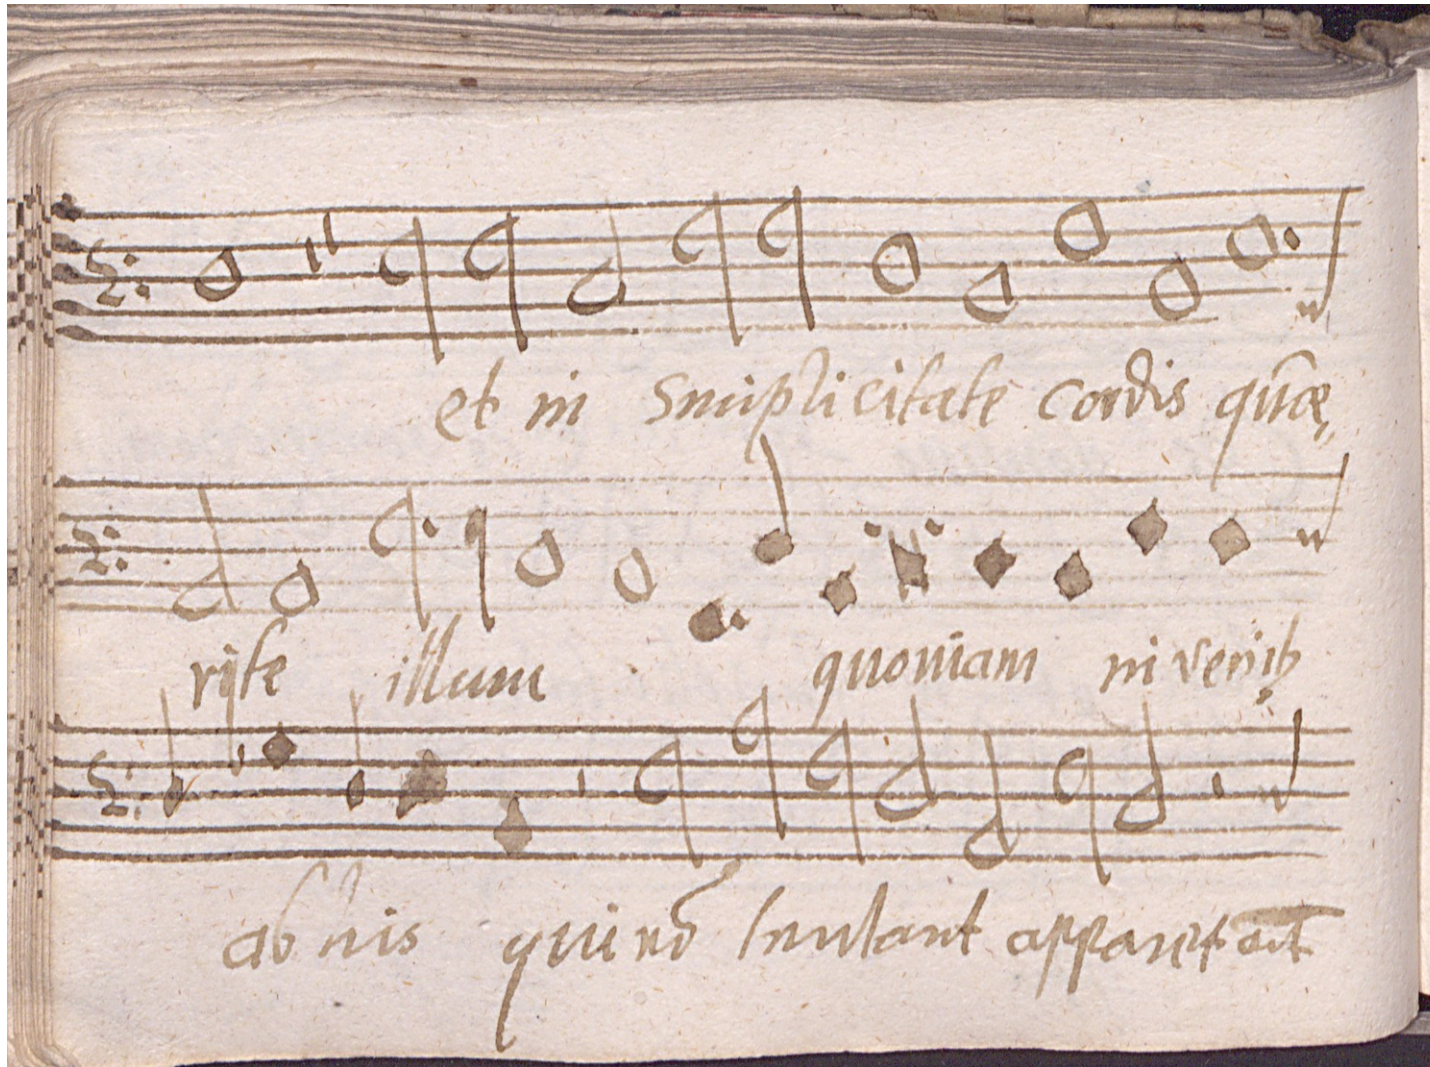 et in Simplicitate cordis quæ
rite illum quoniam in venit
ab his qui nō tentant apparet aūt